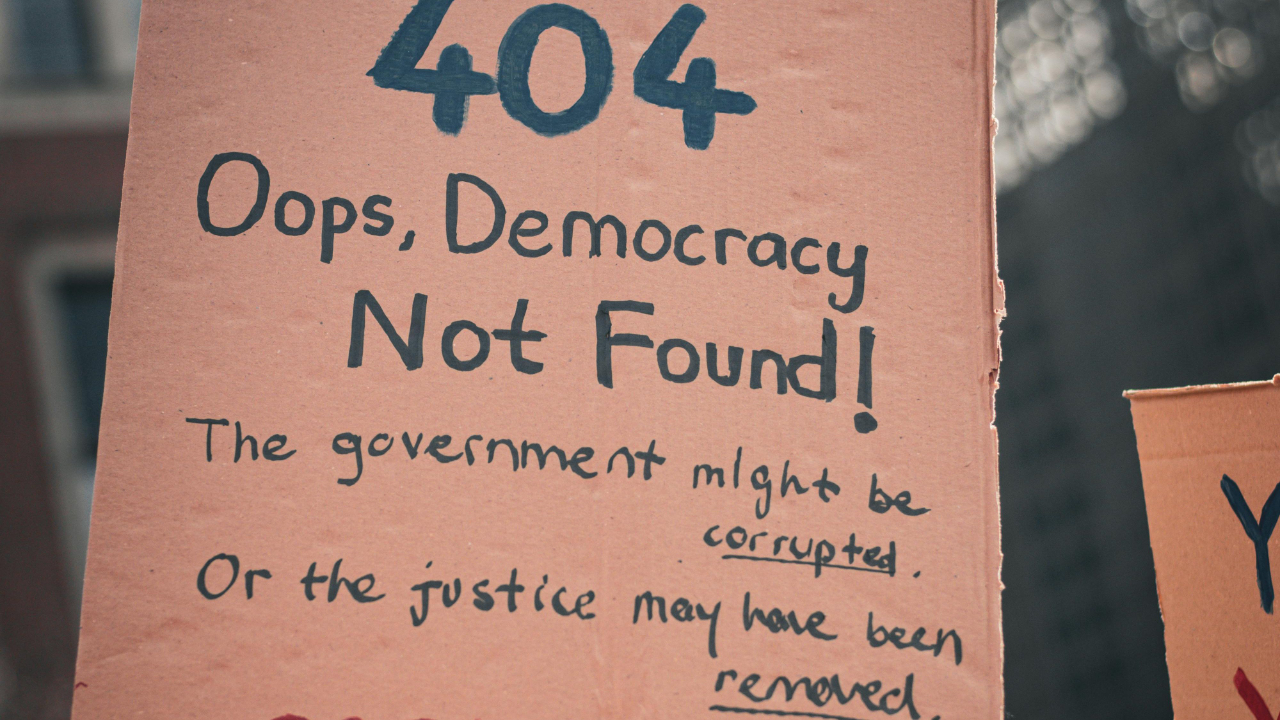 404
Oops, Democracy
Not Found!
The government might be
corrupted.
Or the justice may have been
removed.